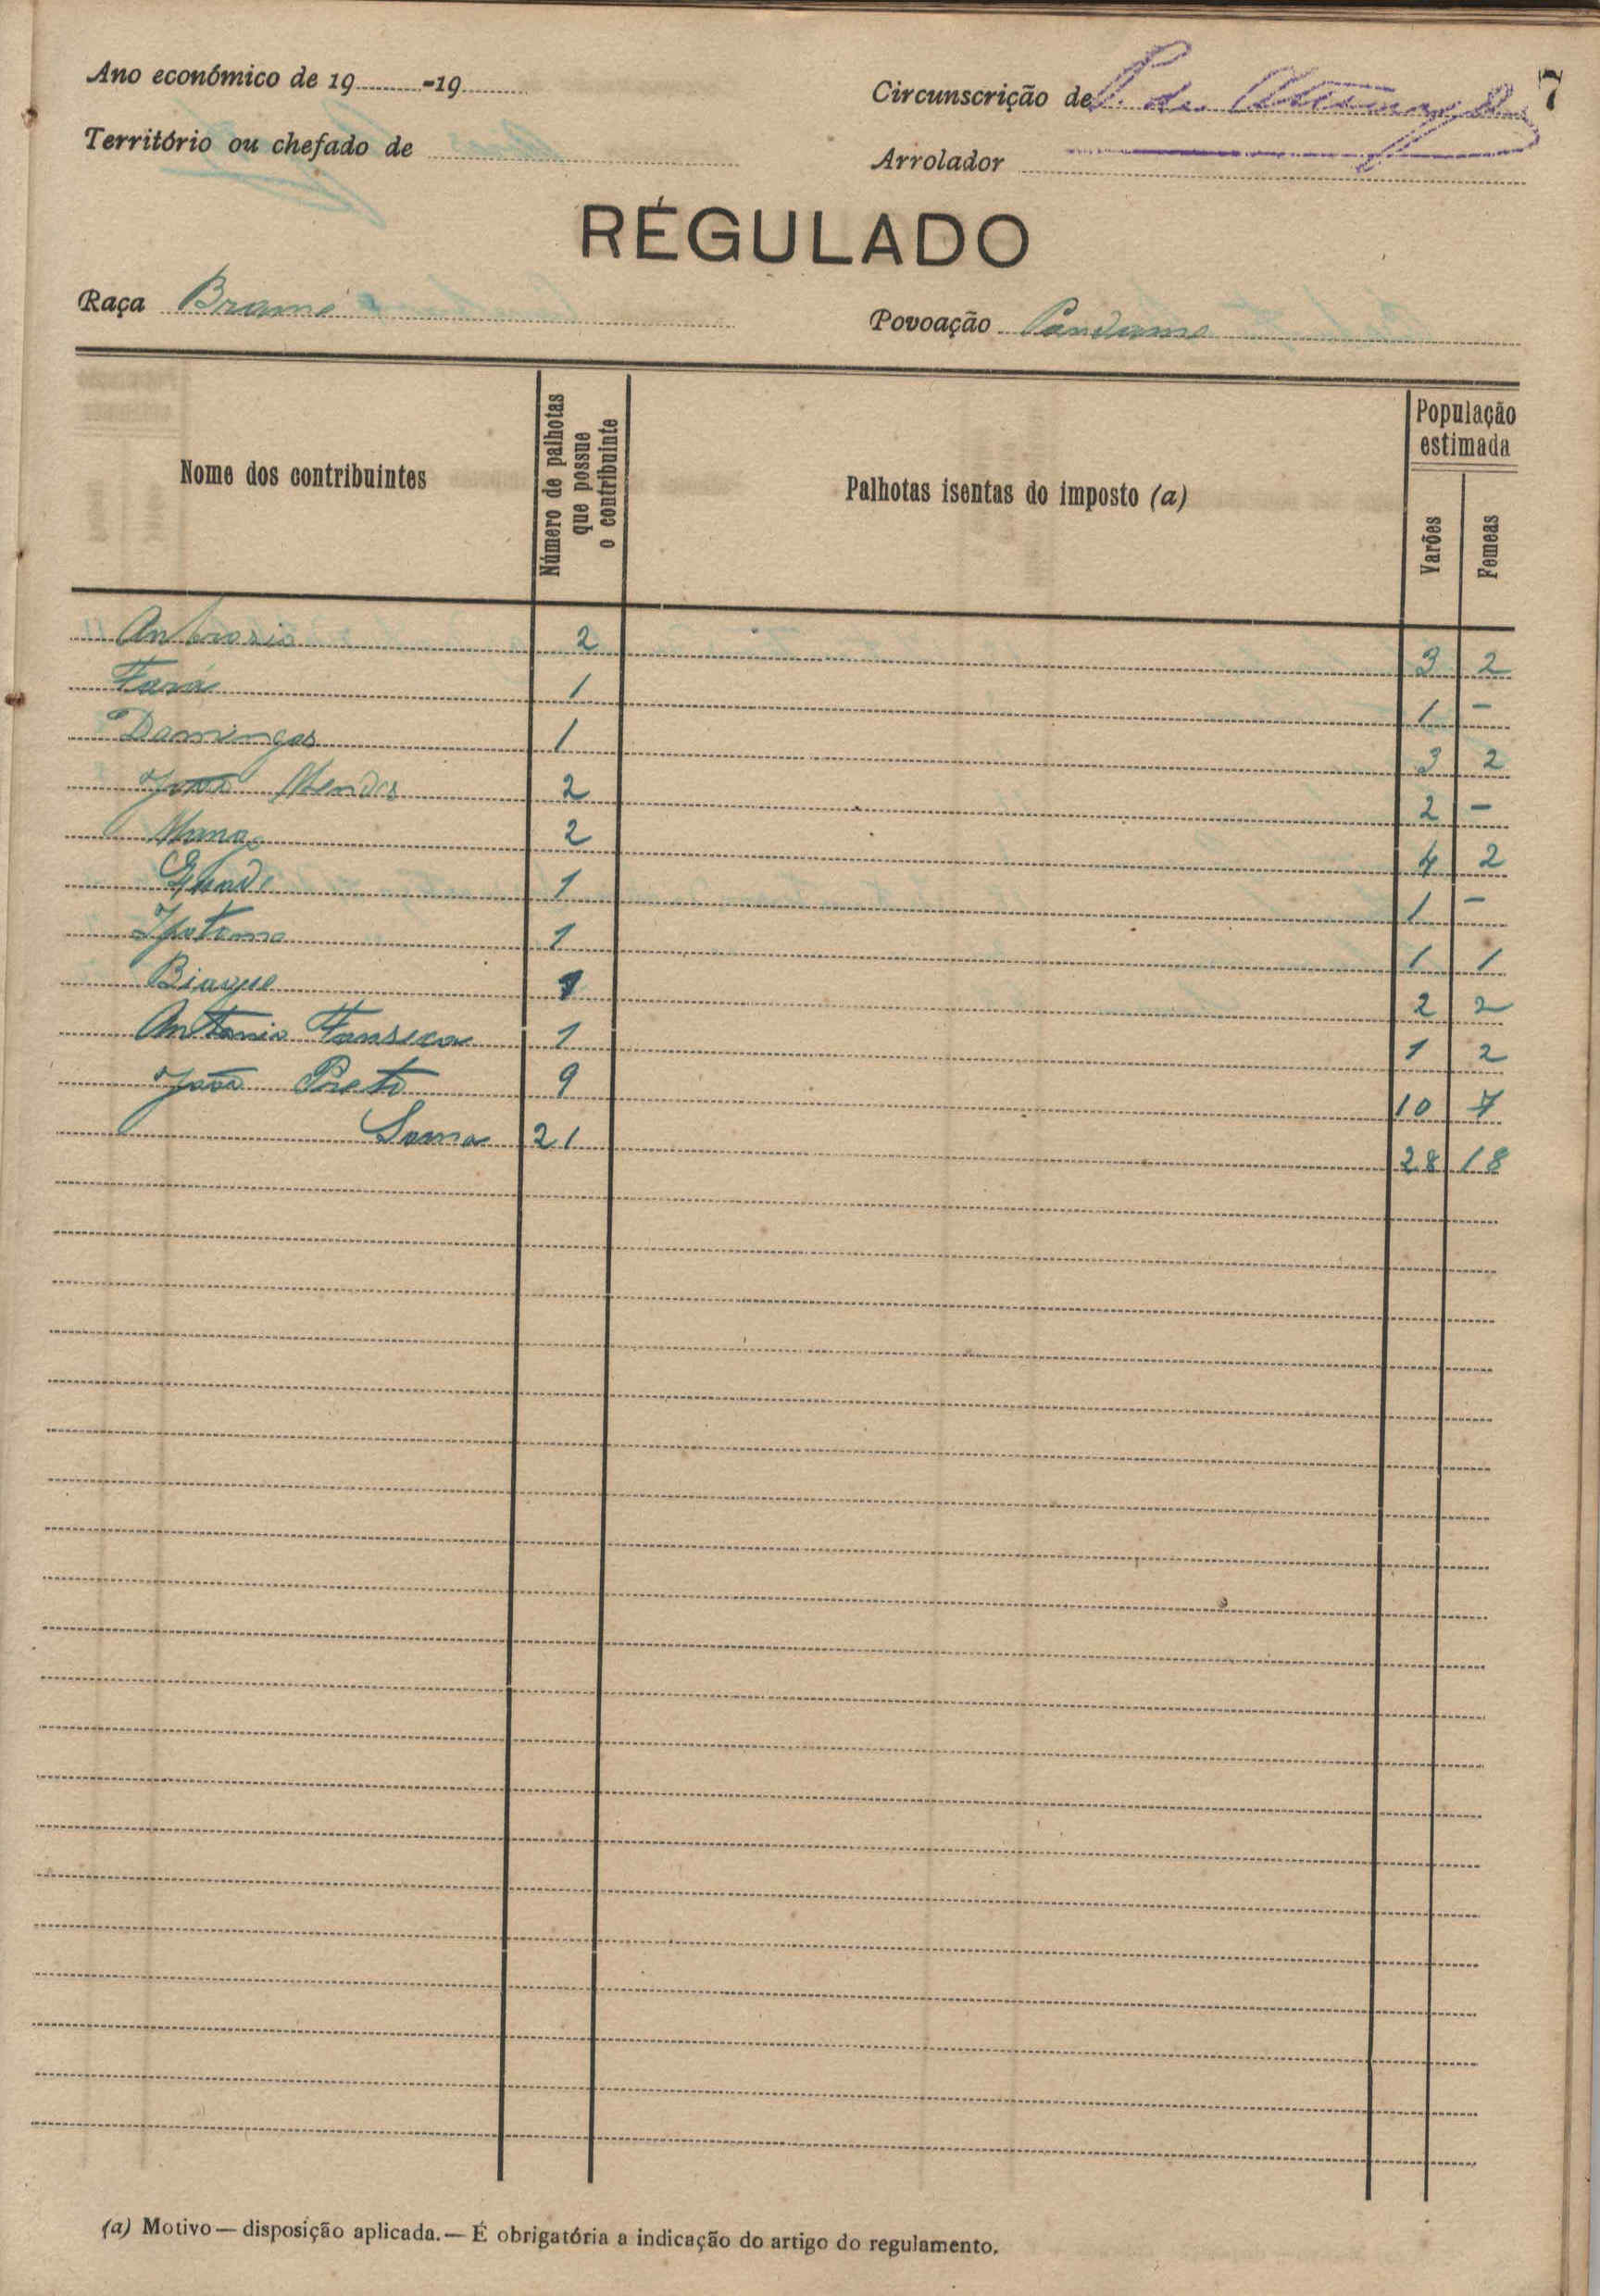 7
Ano económico de 19 -19 Circunscrição de
Território ou chefado de Arrolador
RÉGULADO
Raça Brame Povoação
Nome dos contribuintes Número de palhotas que possue o contribuinte Palhotas isentas do imposto (a) População estimada Varões Femeas
Ambrosio 2 3 2
Fará 1 1 -
Domingos 1 3 2
João Mendes 2 2 -
2 4 2
1 1 -
1 1 1
Biague 1 2 2
Antonio Fonseca 1 1 2
João Preto 9 10 7
Soma 21 28 18
(a) Motivo — disposição aplicada. — É obrigatória a indicação do artigo do regulamento.